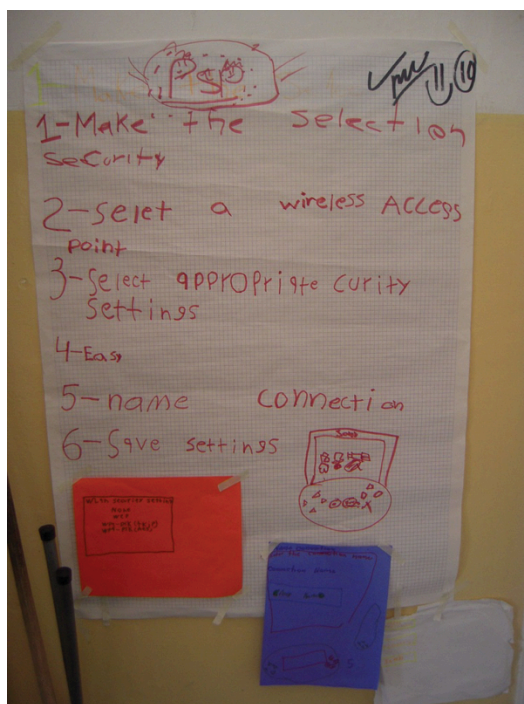 11 10
1-Make the selection
security
2-selet a wireless Access
point
3-Select appropriate curity
settings
4-Easy
5-name connection
6-Save settings